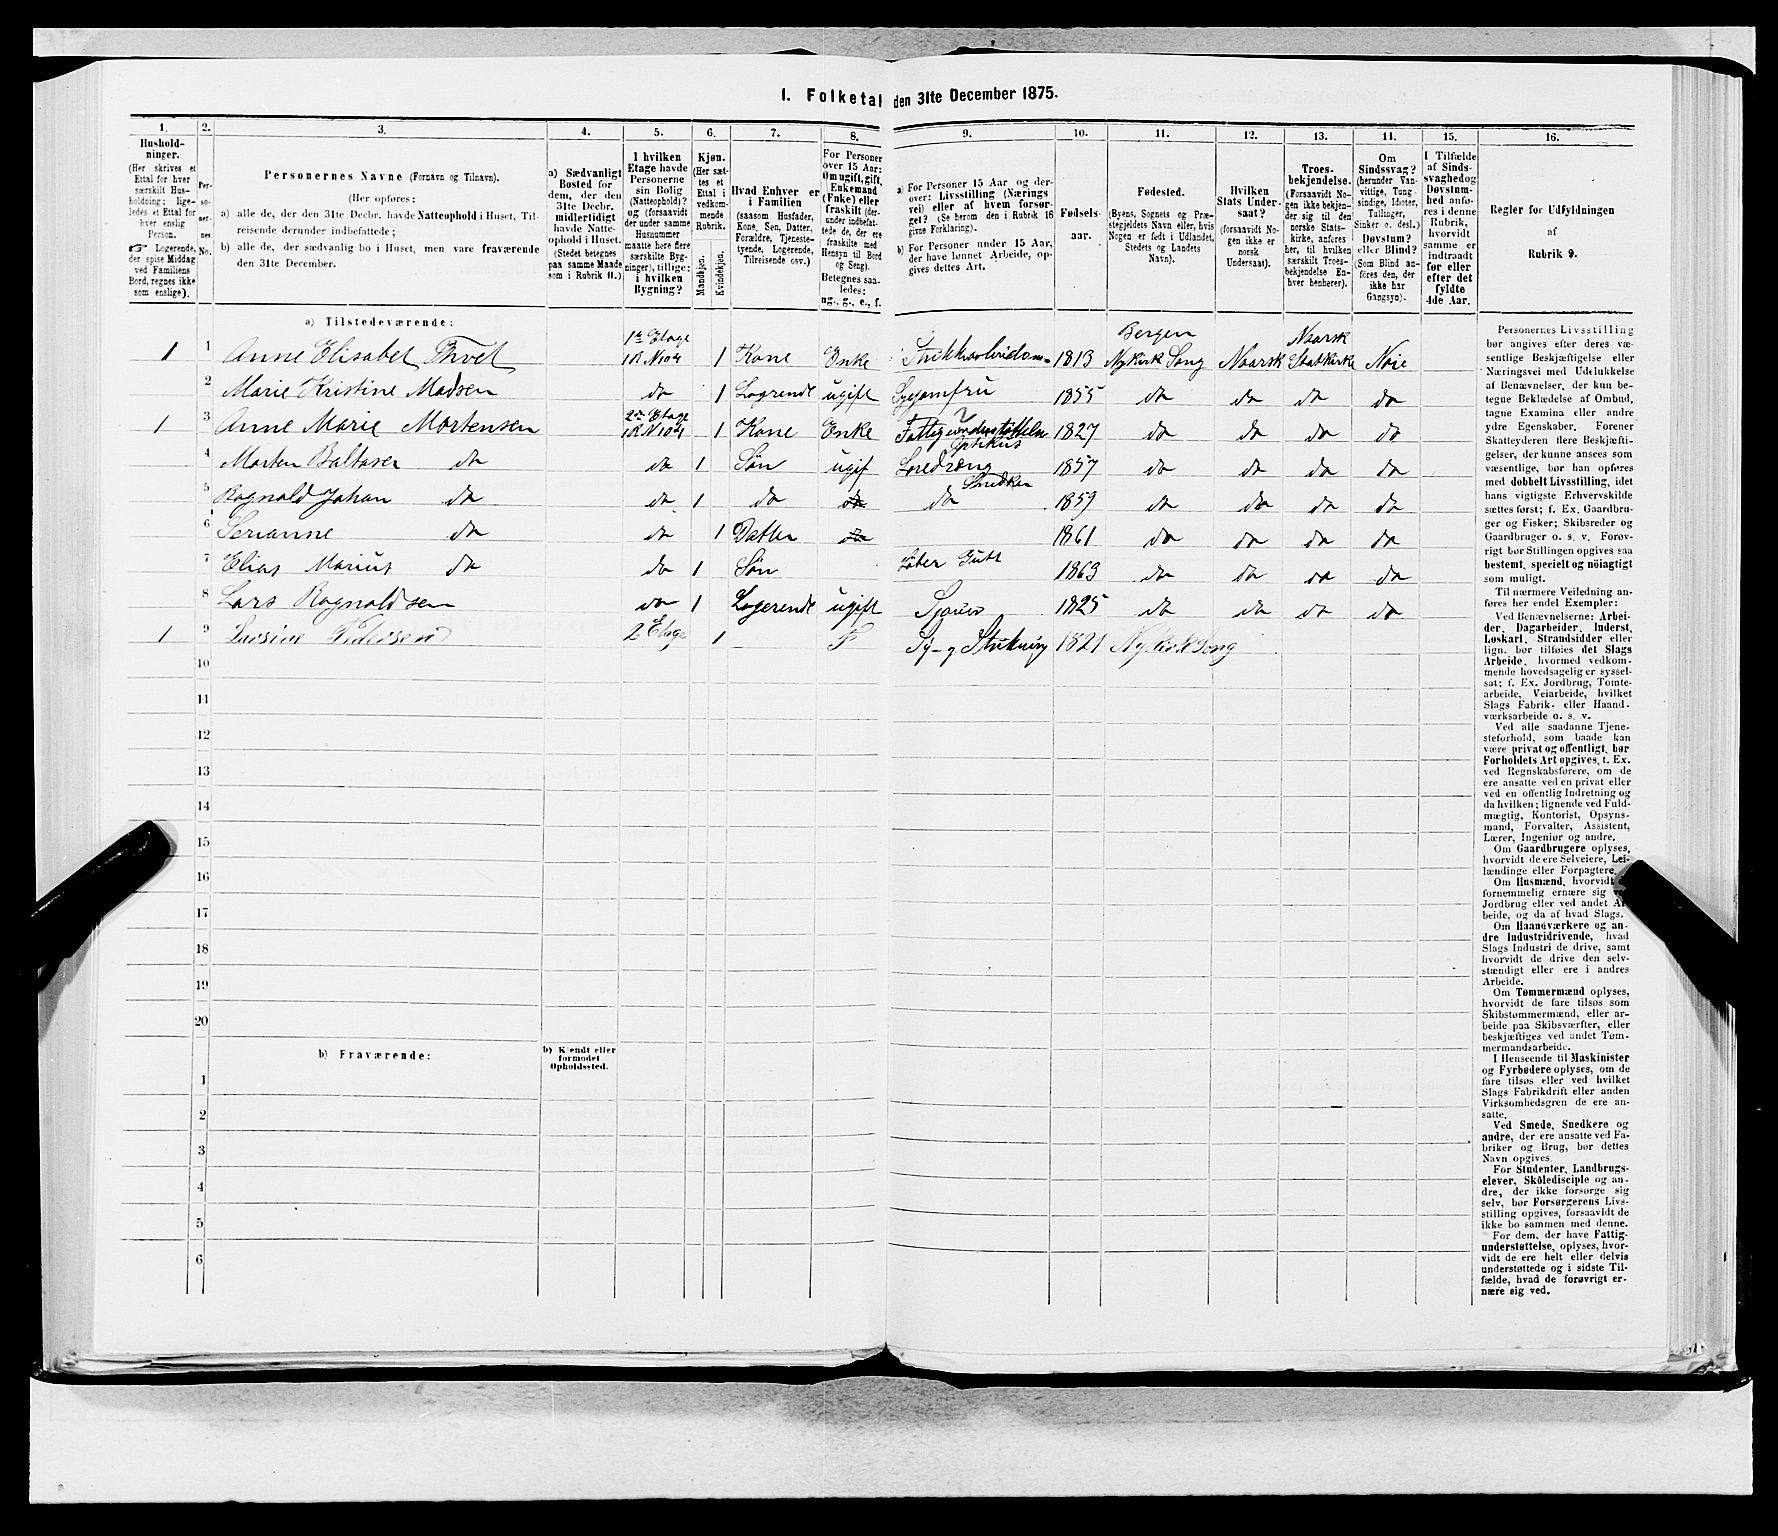 1. Folketal den 31te December 1875.
1. 2. 3. 4. 5. 6. 7. 8. 9. 10. 11. 12. 13. 14. 15. 16.
Hushold-
ninger.
(Her skrives et
Ettal for hver
særskilt Hus-
holdning; lige-
ledes et Ettal for
hver enslig
Person.
☞ Logerende,
der spise Middag
ved Familiens
Bord, regnes ikke
som enslige).
Per-
so-
ner-
nes
No.
Personernes Navne (Fornavn og Tilnavn).
(Her opføres:
a) alle de, der den 31te Decbr. havde Natteophold i Huset, Til-
reisende derunder indbefattede;
b) alle de, der sædvanlig bo i Huset, men vare fraværende
den 31te December.
a) Sædvanligt
Bosted for
dem, der den
31te Decbr.
midlertidigt
havde Natte-
ophold i Huset.
(Stedet betegnes
paa samme Maade
som i Rubrik 11.)
I hvilken
Etage havde
Personerne
sin Bolig
(Natteophold)?
og (forsaavidt
der under samme
Husnummer
maatte høre flere
særskilte Byg-
ninger), tillige:
i hvilken
Bygning?
Kjøn.
(Her sæt-
tes et
Ettal i
vedkom-
mende
Rubrik.
Mandkjøn.
Kvindekjøn.
Hvad Enhver er
i Familien
(saasom Husfader,
Kone, Søn, Datter,
Forældre, Tjeneste-
tyende, Logerende,
Tilreisende osv.)
For Personer
over 15 Aar:
Om ugift, gift,
Enkemand
(Enke) eller
fraskilt (der-
under indbefat-
tede de, der ere
fraskilte med
Hensyn til Bord
og Seng).
Betegnes saa-
ledes:
ug., g., e., f.
a) For Personer 15 Aar og der-
over: Livsstilling (Nærings
vei) eller af hvem forsør-
get? (Se herom den i Rubrik 16
givne Forklaring).
b) For Personer under 15 Aar,
der have lønnet Arbeide, op-
gives dettes Art.
Fødsels-
aar.
Fødested.
(Byens, Sognets og Præ-
stegjeldets Navn eller, hvis
Nogen er født i Udlandet,
Stedets og Landets
Navn).
Hvilken
Stats Under-
saat?
(forsaavidt No-
gen ikke er
norsk
Undersaat).
Troes-
bekjendelse.
(Forsaavidt No-
gen ikke bekjen-
der sig til den
norske Stats-
kirke, anføres
her, til hvilken
særskilt Troes-
bekjendelse En-
hver henhører).
Om
Sindssvag?
(herunder Van-
vittige, Tung-
sindige, Idioter,
Tullinger,
Sinker o. desl.)
Døvstum?
eller Blind?
(Som Blind an-
føres den, der
ikke har
Gangsyn).
I Tilfælde
af Sinds-
svaghed og
Døvstum-
hed anfø-
res i denne
Rubrik,
hvorvidt
samme er
indtraadt
før eller
efter det
fyldte
4de Aar.
Regler for Udfyldningen
af
Rubrik 9.
a) Tilstedeværende:
1 1 Anne Elisabet Tvet 1te Etage 1R N 104 1 Kone Enke 1813 Bergen Nykirk Song Noarsk Noarsk Statkirke Neie
2 Marie Kristine Madsen do 1 Logrende ugift Syjomfru 1855 do do do do
1 3 Anne Marie Mortensen 2den Etage 1R N 104 1 Kone Enke Fattigunderstøttelse 1827 do do do do
4 Morten Baltaser do do 1 Søn ugif Loredræng Optikus 1857 do do do do
5 Rognald Johan do do 1 do do do Snedker 1859 do do do do
6 Serianne do do 1 Datter do 1861 do do do do
7 Elias Marius do do 1 Søn Løber Gutt 1863 do do do do
8 Lars Rognaldsen do 1 Logerende ugift Sjouer 1825 do do do do
1 9 Lursine Pedersen 2 Etage 1 Sy- og Strikning 1821 Nykirk Song
10
11
12
13
14
15
16
17
18
19
20
b) Fraværende:
b) Kjendt eller
formodet
Opholdssted.
1
2
3
4
5
6
Personernes Livsstilling
bør angives efter deres væ-
sentlige Beskjæftigelse eller
Næringsvei med Udelukkelse
af Benævnelser, der kun be-
tegne Beklædelse af Ombud,
tagne Examina eller andre
ydre Egenskaber. Forener
Skatteyderen flere Beskjæfti-
gelser, der kunne ansees som
væsentlige, bør han opføres
med dobbelt Livsstilling, idet
hans vigtigste Erhvervskilde
sættes først; f. Ex. Gaardbru-
ger og Fisker; Skibsreder og
Gaardbruger o. s. v. Forøv-
rigt bør Stillingen opgives saa
bestemt, specielt og nøiagtigt
som muligt.
Til nærmere Veiledning an-
føres her endel Exempler:
Ved Benævnelserne: Arbei-
der, Dagarbeider, Inderst,
Løskarl, Strandsidder eller
lign. bør tilføies det Slags
Arbeide, hvormed vedkom-
mende hovedsagelig er syssel-
sat; f. Ex. Jordbrug, Tomte-
arbeide, Veiarbeide, hvilket
Slags Fabrik- eller Haand-
værksarbeide o. s. v.
Ved alle saadanne Tjene-
steforhold, som baade kan
være privat og offentligt, bør
Forholdets Art opgives, t. Ex.
ved Regnskabsførere, om de
ere ansatte ved en privat eller
ved en offentlig Indretning og
da hvilken; lignende ved Fuld-
mægtig, Kontorist, Opsyns-
mand, Forvalter, Assistent,
Lærer, Ingeniør og andre.
Om Gaardbrugere oplyses,
hvorvidt de ere Selveiere, Lei-
lændinge eller Forpagtere.
Om Husmænd, hvorvidt
fornemmelig ernære sig
Jordbrug eller ved andet Ar-
beide, og da af hvad Slags.
Om Haandværkere og an-
dre Industridrivende, hvad
Slags Industri de drive, samt
hvorvidt de drive den selv-
stændigt eller ere i andres
Arbeide.
Om Tømmermænd oplyses,
hvorvidt de fare tilsøs som
Skibstømmermænd, eller ar-
beide paa Skibsværfter, eller
beskjæftiges ved andet Tøm-
mermandsarbeide.
I Henseende til Maskinister
og Fyrbødere oplyses, om de
fare tilsøs eller ved hvilket
Slags Fabrikdrift eller anden
Virksomhedsgren de ere an-
satte.
Ved Smede, Snedkere og
andre, der ere ansatte ved Fa-
briker og Brug, bør dettes
Navn opgives.
For Studenter, Landbrugs-
elever, Skoledisciple og an-
dre, der ikke forsørge sig
selv, bør Forsørgerens Livs-
stilling opgives, forsaavidt de
ikke bo sammen med denne.
For dem, der have Fattig-
understøttelse, oplyses, hvor-
vidt de ere helt eller delvis
understøttede og i sidste Til-
fælde, hvad de forøvrigt er-
nære sig ved.